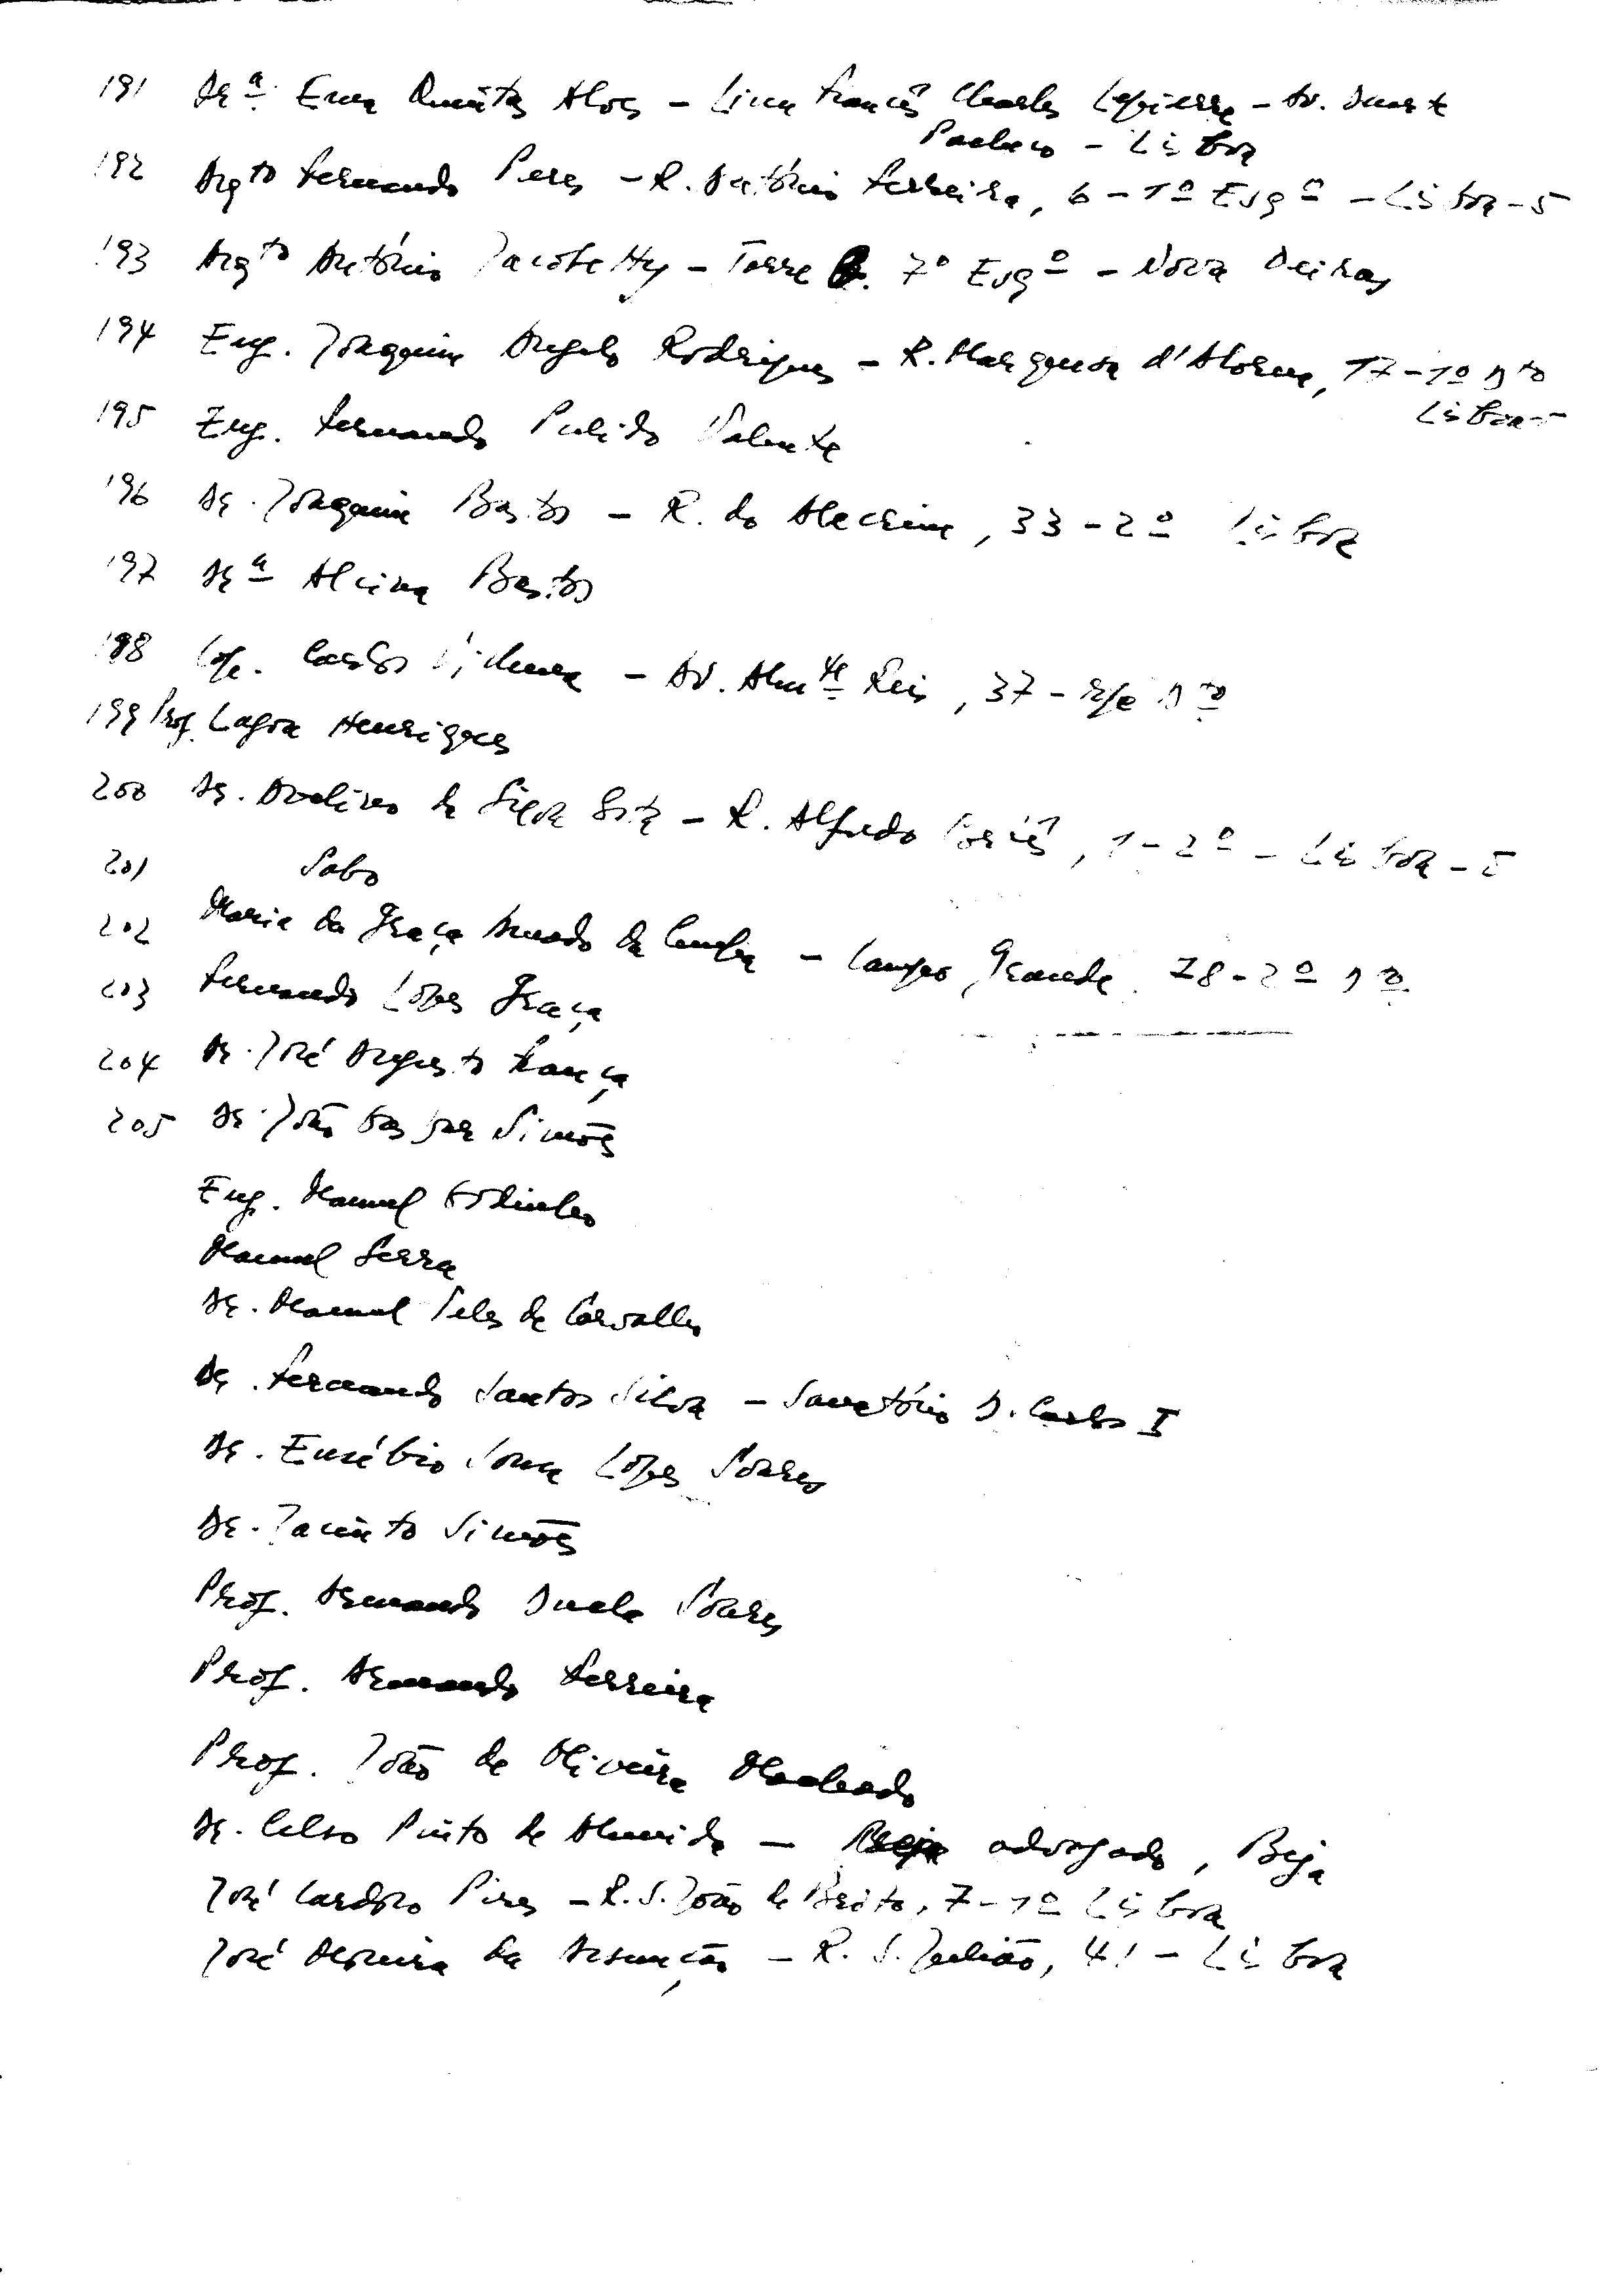 191 Drª. Ema Quintas Alves – Liceu Francês Charles Lepierre – Av. Duarte
Pacheco – Lisboa
192 Arqto Fernando Peres – R. António Ferreira, 6 – 1º Esqº – Lisboa – 5
193 Arqto António Jacobetty – Torre 7º Esqº – Nova Oeiras
194 Eng. Joaquim Angelo Rodrigues – R. Marquesa d'Alorna, 17 – 1º Dto
Lisboa
195 Eng. Fernando Pulido Valente
196 Dr. Joaquim Bastos – R. do Alecrim, 33 – 2º Lisboa
197 Drª Alcina Bastos
198 Cap. Carlos Vilhena – Av. Almte Reis, 37 – r/c Dto
199 Prof. Lagoa Henriques
200 Dr. Avelino da Costa – R. Alfredo Cortês, 1 – 2º – Lisboa – 5
201
202 Maria da Graça Amado da Cunha – Campo Grande, 78 – 2º Dto
203 Fernando Lopes Graça
204 Dr. José Augusto França
205 Dr. João Gaspar Simões
Eng. Manuel Godinho
Manuel Serra
Dr. Manuel Teles de Carvalho
Dr. Fernando Santos Silva – Sanatório D. Carlos I
Dr. Eusébio Lopes Soares
Dr. Jacinto Simões
Prof. Armando Ducla Soares
Prof. Armando Ferreira
Prof. João de Oliveira Machado
Dr. Celso Pinto de Almeida – advogado, Beja
José Cardoso Pires – R. S. João de Brito, 7 – 1º Lisboa
José Moreira da Assunção – R. S. Julião, 41 – Lisboa